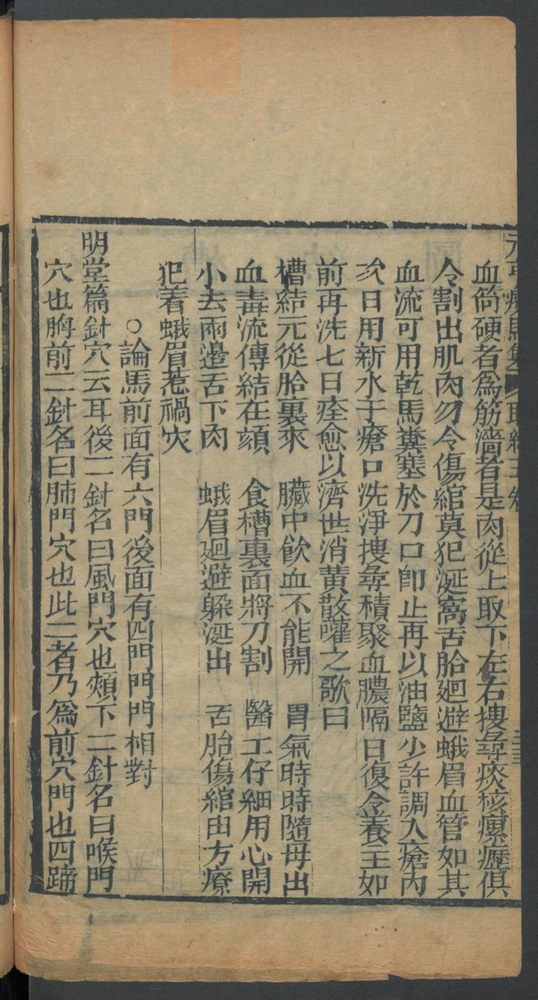 元亨療馬集
血筒硬者為筋濇者是肉從上取下左右摟尋痰核瘰癧俱
令割出肌肉勿令傷綰莫犯涎窩舌胎廻避蛾眉血管如其
血流可用乾馬糞塞於刀口卽止再以油鹽少許調入瘡內
次日用新水于瘡口洗淨摟尋積聚血膿隔日復令養主如
前再洗七日痊愈以濟世消黃散嚾之歌曰
槽結元從胎裏來　臟中飲血不能開　胃氣時時隨母出
血毒流傳結在顙　食槽裏面將刀割　醫工仔細用心開
小去兩邊舌下肉　蛾眉廻避躲涎出　舌胎傷綰由方療
犯着蛾眉惹禍灾
○論馬前面有六門後面有四門門門相對
明堂篇針穴云耳後一針名曰風門穴也頰下二針名曰喉門
穴也胸前二針名曰肺門穴也此二者乃為前穴門也四蹄